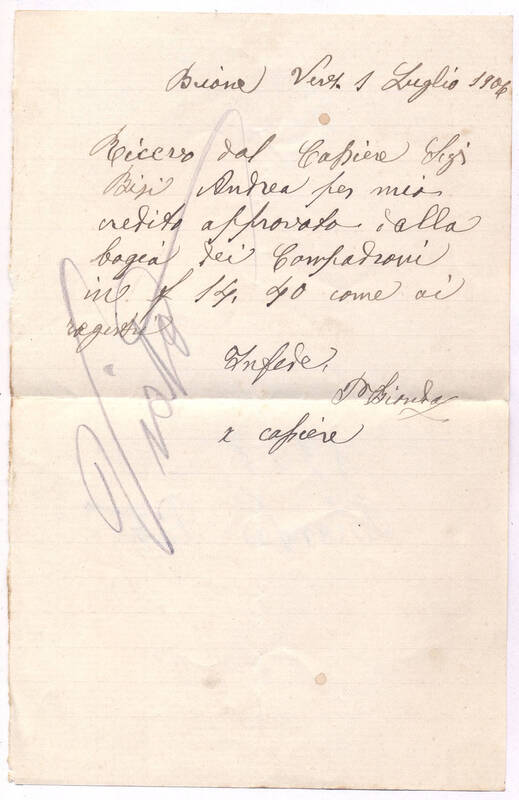 Brione Verz. 1 Luglio 1906
Ricevo dal Cassiere Sigr
Bisi Andrea per mio
credito approvato dalla
bogia dei Compadroni
in f 14. 40 come ai
registri
In fede,
Bionda
x cassiere
Visto